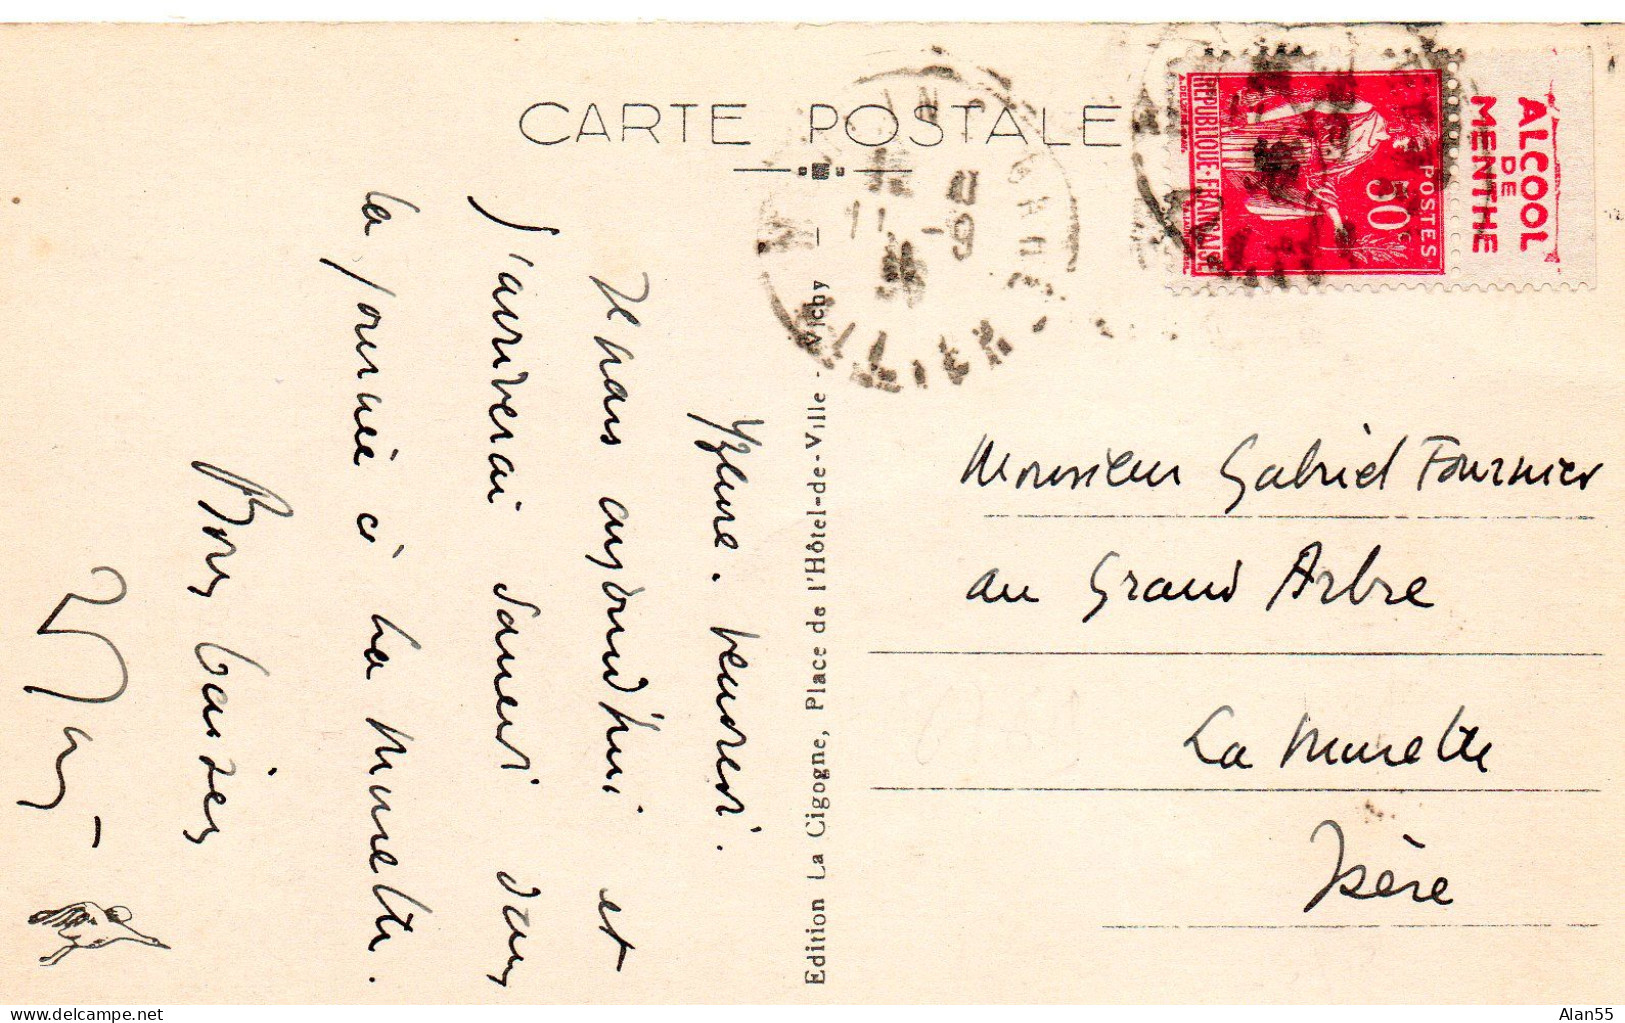 CARTE POSTALE
RÉPUBLIQUE·FRANÇAISE
POSTES
50c
ALCOOL
DE
MENTHE
11 -9
36
ALLIER
Yzeure. vendredi.
Je pars aujourd'hui et
j'arriverai samedi dans
la journée à La Murette.
Bons baisers
Edition La Cigogne, Place de l'Hôtel-de-Ville - Vichy -
Monsieur Gabriel Fournier
au Grand Arbre
La Murette
Isère
Alan55